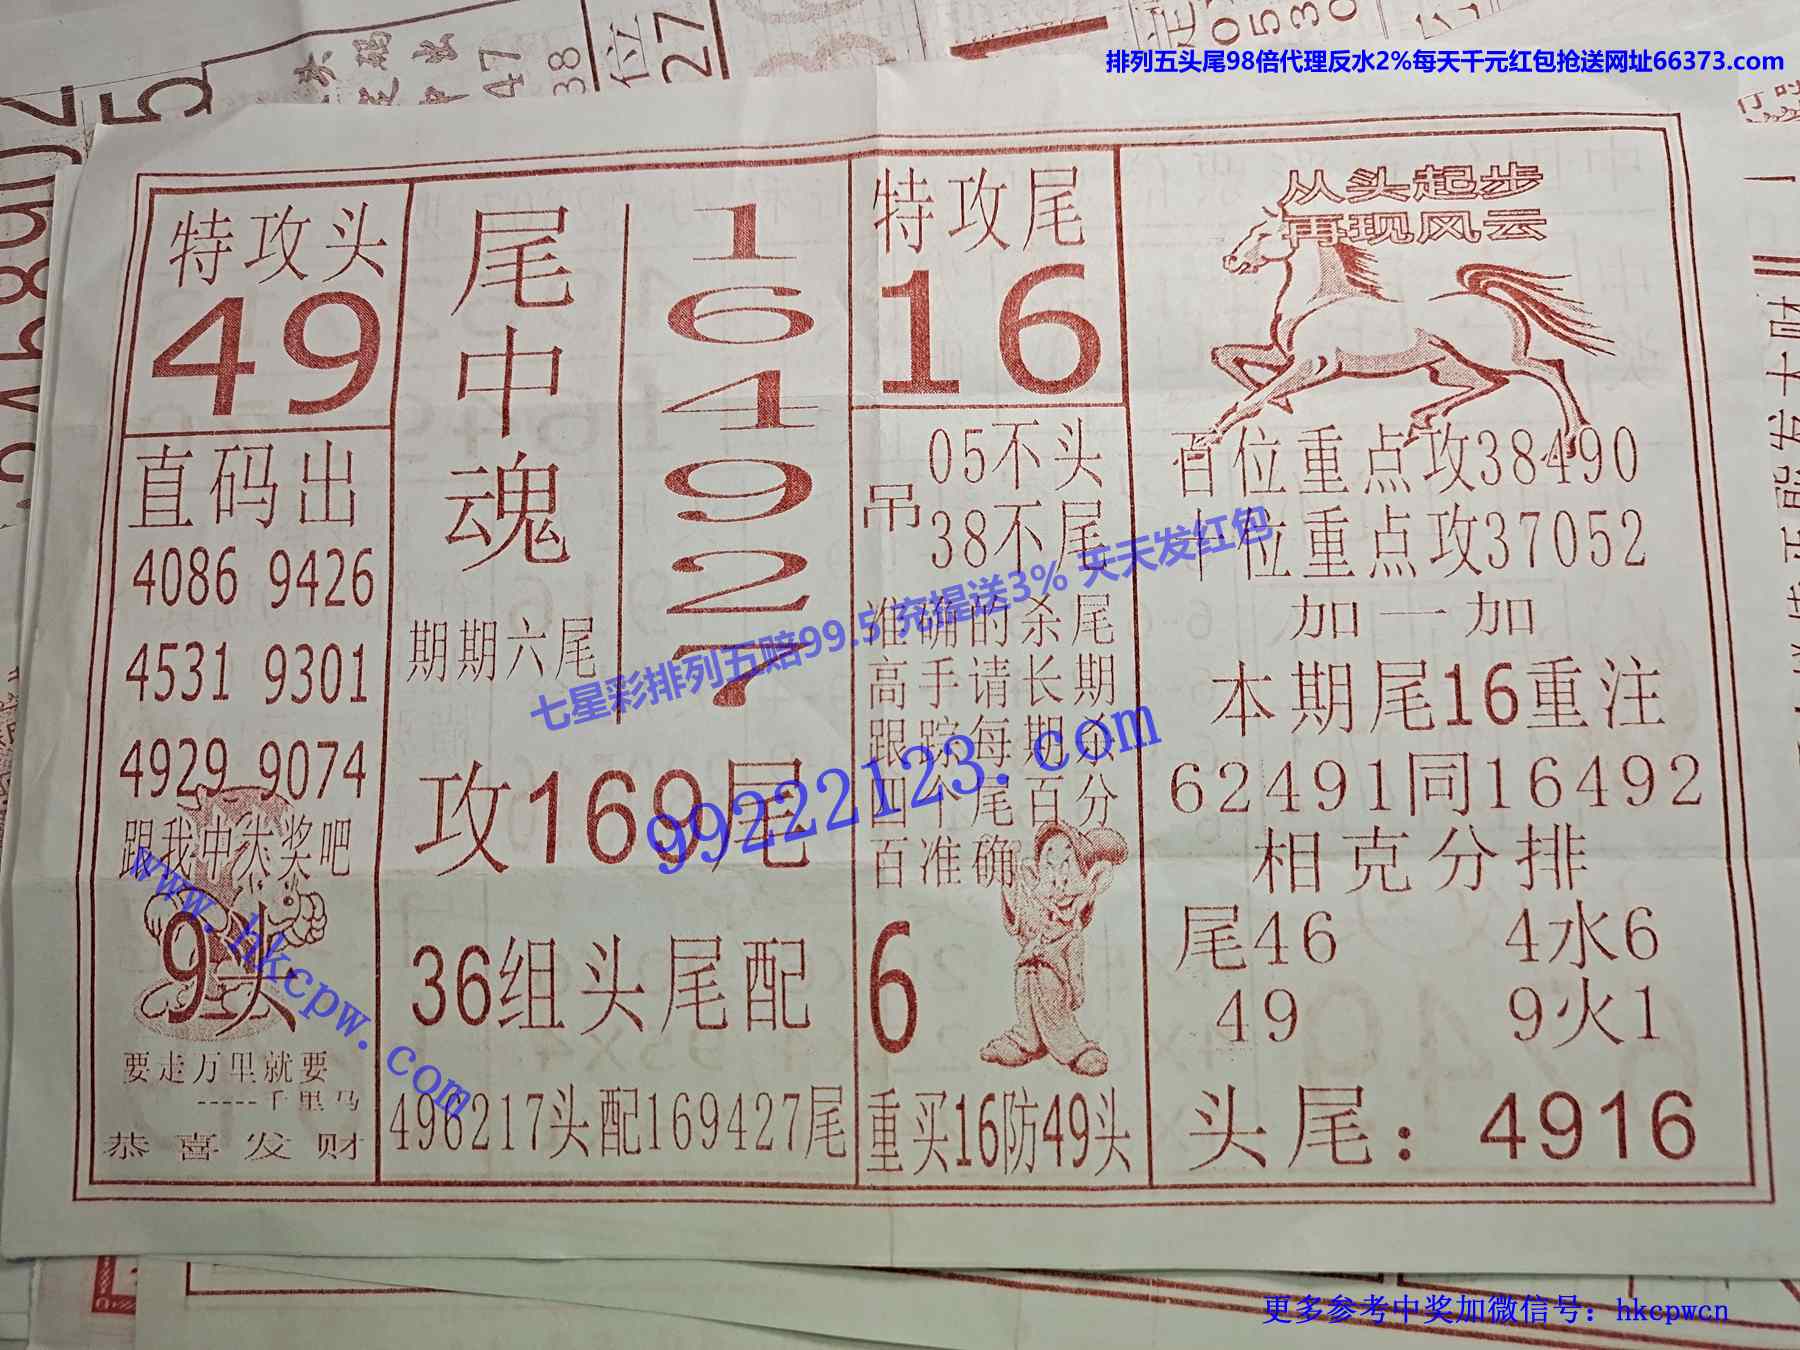 排列五头尾98倍代理反水2%每天千元红包抢送网址66373.com
特攻头
49
直码出
4086 9426
4531 9301
4929 9074
跟我中大奖吧
9头
要走万里就要
-----千里马
恭喜发财
尾中魂
164927
期期六尾
攻169尾
36组头尾配
496217头配169427尾
特攻尾
16
吊
05不头
38不尾
准确的杀尾
高手请长期
跟踪每期杀
四个尾百分
百准确
6
重买16防49头
从头起步
再现风云
百位重点攻38490
十位重点攻37052
加一加
本期尾16重注
62491同16492
相克分排
尾46 4水6
49 9火1
头尾：4916
七星彩排列五赔99.5 充提送3% 天天发红包
99222123.com
www.hkcpw.com
更多参考中奖加微信号：hkcpwcn